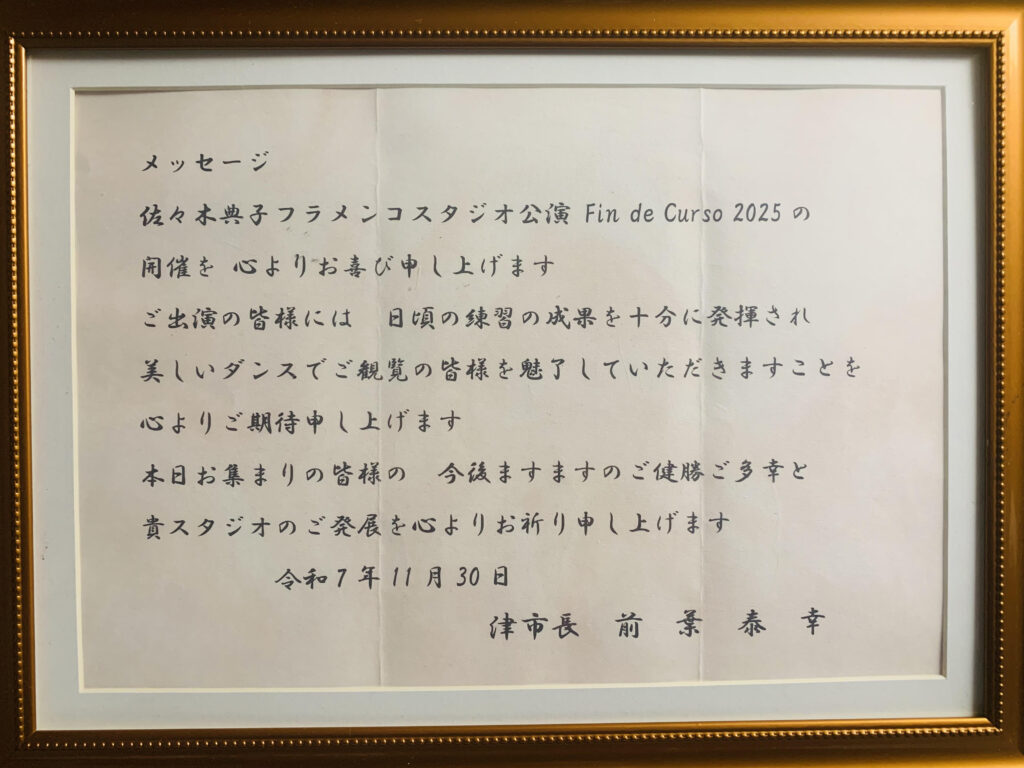 メッセージ
佐々木典子フラメンコスタジオ公演 Fin de Curso 2025 の
開催を 心よりお喜び申し上げます
ご出演の皆様には　日頃の練習の成果を十分に発揮され
美しいダンスでご観覧の皆様を魅了していただきますことを
心よりご期待申し上げます
本日お集まりの皆様の　今後ますますのご健勝ご多幸と
貴スタジオのご発展を心よりお祈り申し上げます
令和7年11月30日
津市長　前　葉　泰　幸